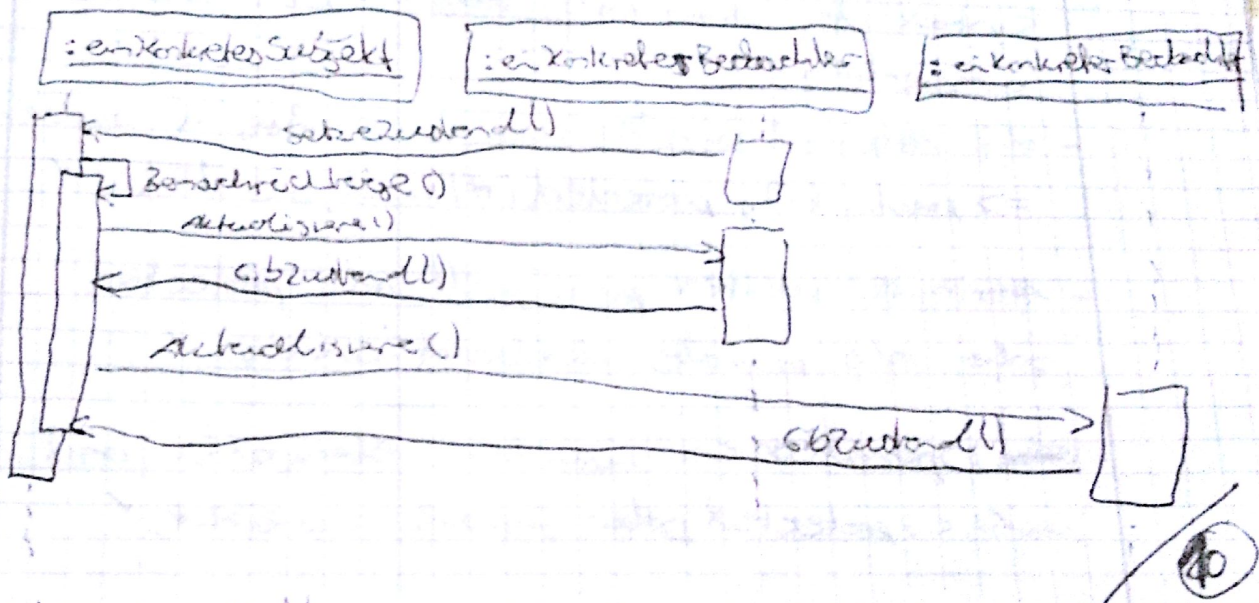 : einKonkretesSubjekt
: einKonkreterBeobachter
: einKonkreterBeobachter
SetzeZustand()
Benachrichtige()
Aktualisiere()
GibZustand()
Aktualisiere()
GibZustand()